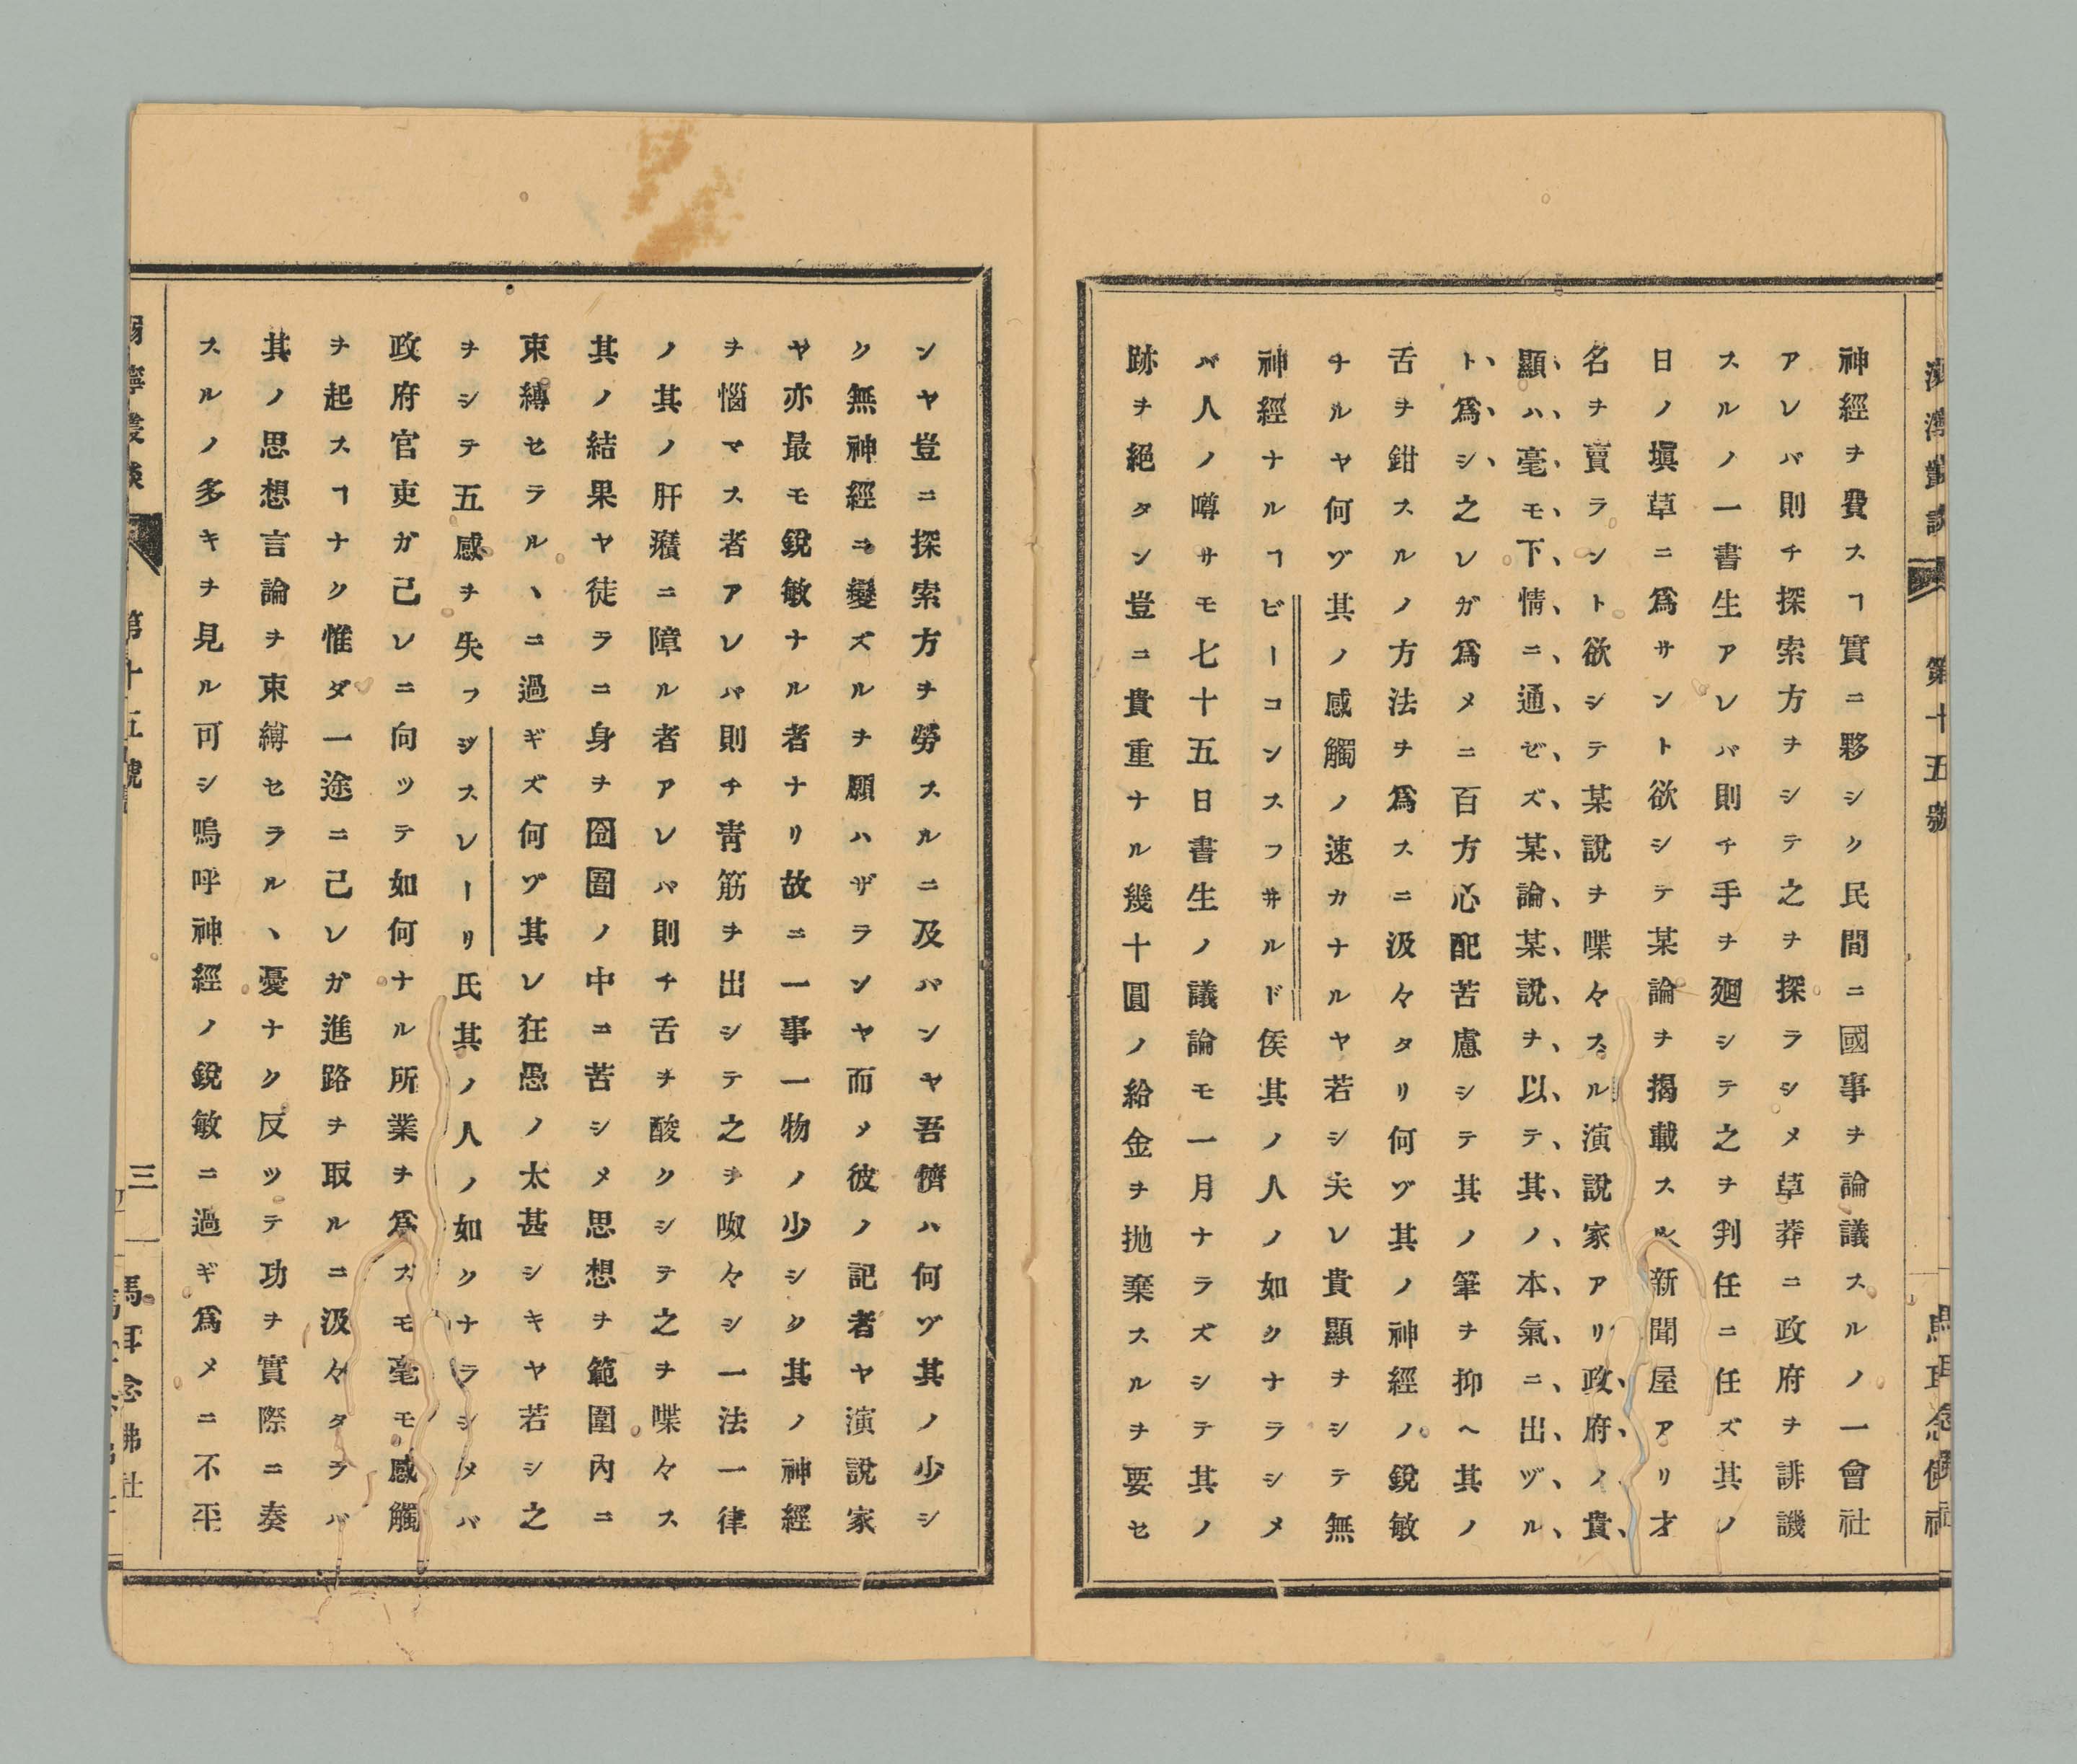 第十五號
神經ヲ費スヿ實ニ夥シク民間ニ國事ヲ論議スルノ一會社
アレバ則チ探索方ヲシテ之ヲ探ラシメ草莽ニ政府ヲ誹譏
スルノ一書生アレバ則チ手ヲ廻シテ之ヲ判任ニ任ズ其ノ
日ノ塡草ニ爲サント欲シテ某論ヲ揭載スル新聞屋アリ才
名ヲ賣ラント欲シテ某說ヲ喋々スル演說家アリ政府ノ貴
顯ハ毫モ下情ニ通ゼズ某論某說ヲ以テ其ノ本氣ニ出ヅル
ト爲シ之レガ爲メニ百方心配苦慮シテ其ノ筆ヲ抑ヘ其ノ
舌ヲ鉗スルノ方法ヲ爲スニ汲々タリ何ヅ其ノ神經ノ銳敏
ナルヤ何ヅ其ノ感觸ノ速カナルヤ若シ夫レ貴顯ヲシテ無
神經ナルヿビーコンスフ井ルド侯其ノ人ノ如クナラシメ
バ人ノ噂サモ七十五日書生ノ議論モ一月ナラズシテ其ノ
跡ヲ絕タン豈ニ貴重ナル幾十圓ノ給金ヲ抛棄スルヲ要セ
ンヤ豈ニ探索方ヲ勞スルニ及バンヤ吾儕ハ何ヅ其ノ少シ
ク無神經ニ變ズルヲ願ハザランヤ而メ彼ノ記者ヤ演說家
ヤ亦最モ銳敏ナル者ナリ故ニ一事一物ノ少シク其ノ神經
ヲ惱マス者アレバ則チ靑筋ヲ出シテ之ヲ呶々シ一法一律
ノ其ノ肝癪ニ障ル者アレバ則チ舌ヲ酸クシテ之ヲ喋々ス
其ノ結果ヤ徒ラニ身ヲ囹圄ノ中ニ苦シメ思想ヲ範圍內ニ
束縛セラルヽニ過ギズ何ヅ其レ狂愚ノ太甚シキヤ若シ之
ヲシテ五感ヲ失フジスレーリ氏其ノ人ノ如クナラシメバ
政府官吏ガ己レニ向ッテ如何ナル所業ヲ爲スモ毫モ感觸
ヲ起スヿナク惟ダ一途ニ己レガ進路ヲ取ルニ汲々タラバ
其ノ思想言論ヲ束縛セラルヽ憂ナク反ッテ功ヲ實際ニ奏
スルノ多キヲ見ル可シ嗚呼神經ノ銳敏ニ過ギ爲メニ不平
第十五號
三